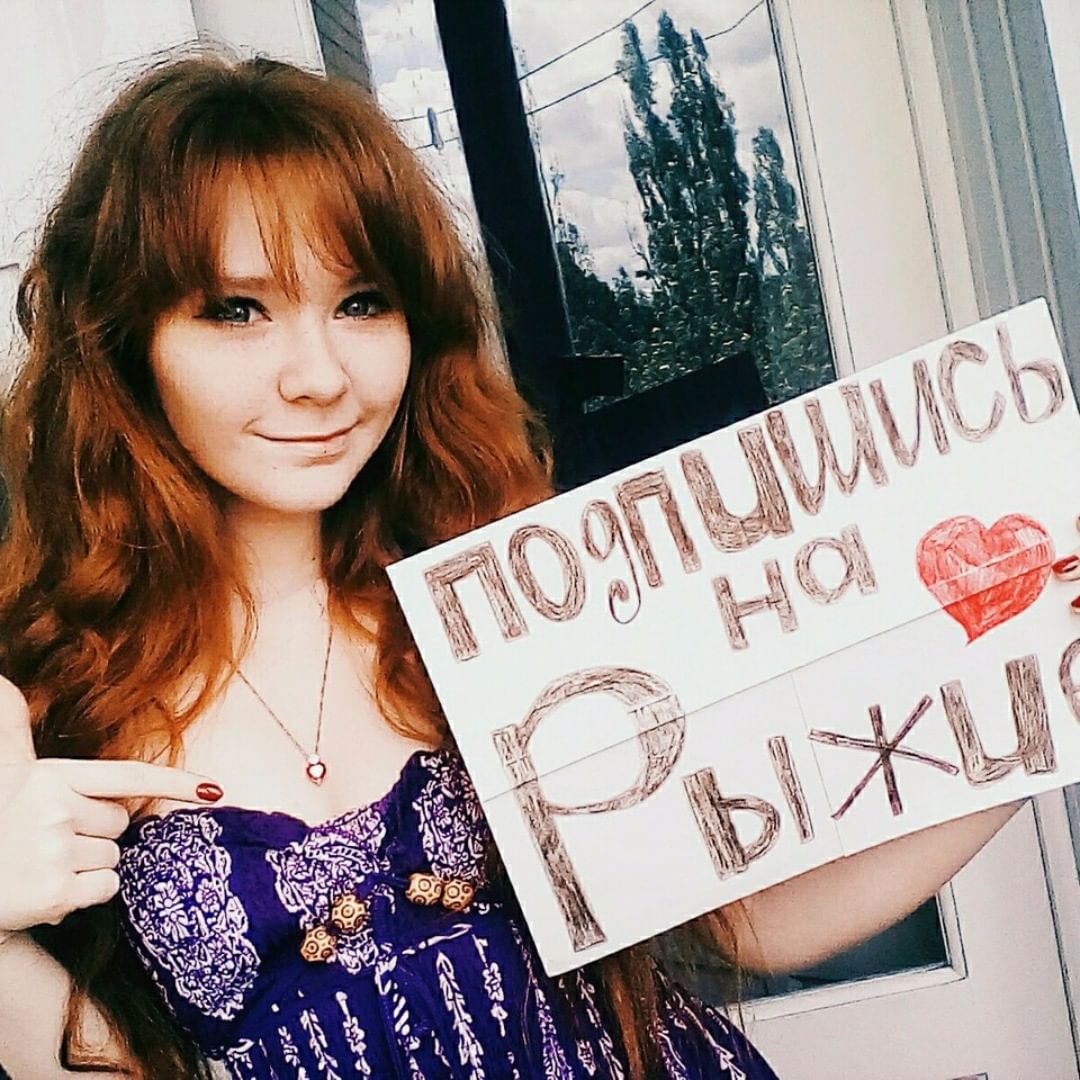 подпишись
на
Рыжие